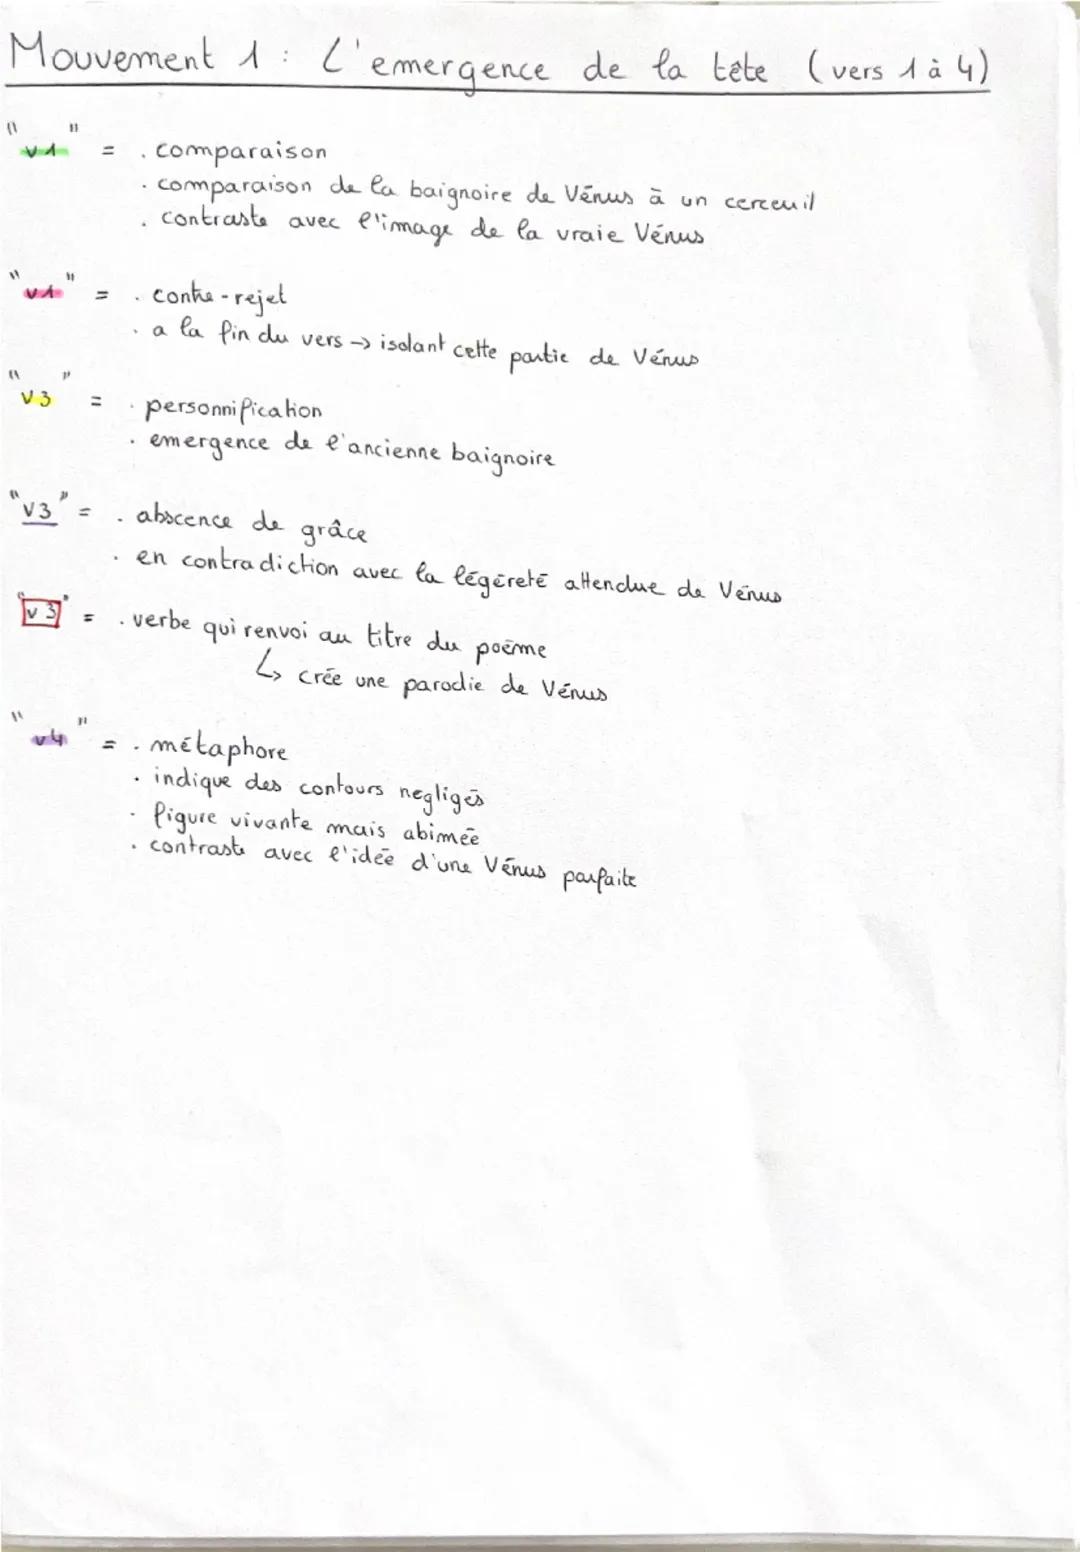 Mouvement 1 : L'emergence de la tête (vers 1 à 4)
"v1" = . comparaison
. comparaison de la baignoire de Vénus à un cerceuil
. contraste avec l'image de la vraie Vénus
"v1" = . contre-rejet
. a la fin du vers → isolant cette partie de Vénus
"v3" = . personnification
. emergence de l'ancienne baignoire
"v3" = . abscence de grâce
. en contradiction avec la légèreté attendue de Vénus
"v3" = . verbe qui renvoi au titre du poème
↳ crée une parodie de Vénus
"v4" = . métaphore
. indique des contours negligés
. figure vivante mais abimée
. contraste avec l'idée d'une Vénus parfaite